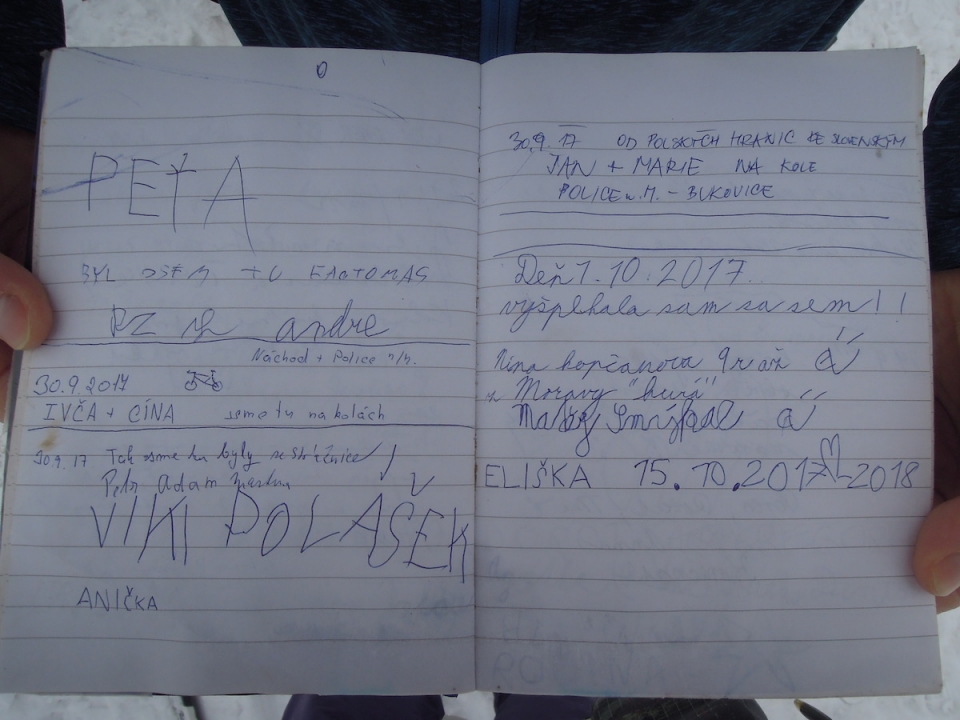 PEŤA
BYL JSEM TU FANTOMAS
andre
Náchod + Police n/M.
30.9.2017
IVČA + CÍNA jsme tu na kolách
30.9.17 Tak jsme tu byly ze Strážnice!
Petr Adam Martin
VIKI POLÁŠEK
ANIČKA
30.9.17 OD POLSKÝCH HRANIC KE SLOVENSKÝM
JAN + MARIE NA KOLE
POLICE n. M. - BUKOVICE
Deň 1.10.2017
vyšplhala sam sa sem!!
Nina kopčanova 9
z Moravy "hurá"
ELIŠKA 15.10.2017-2018